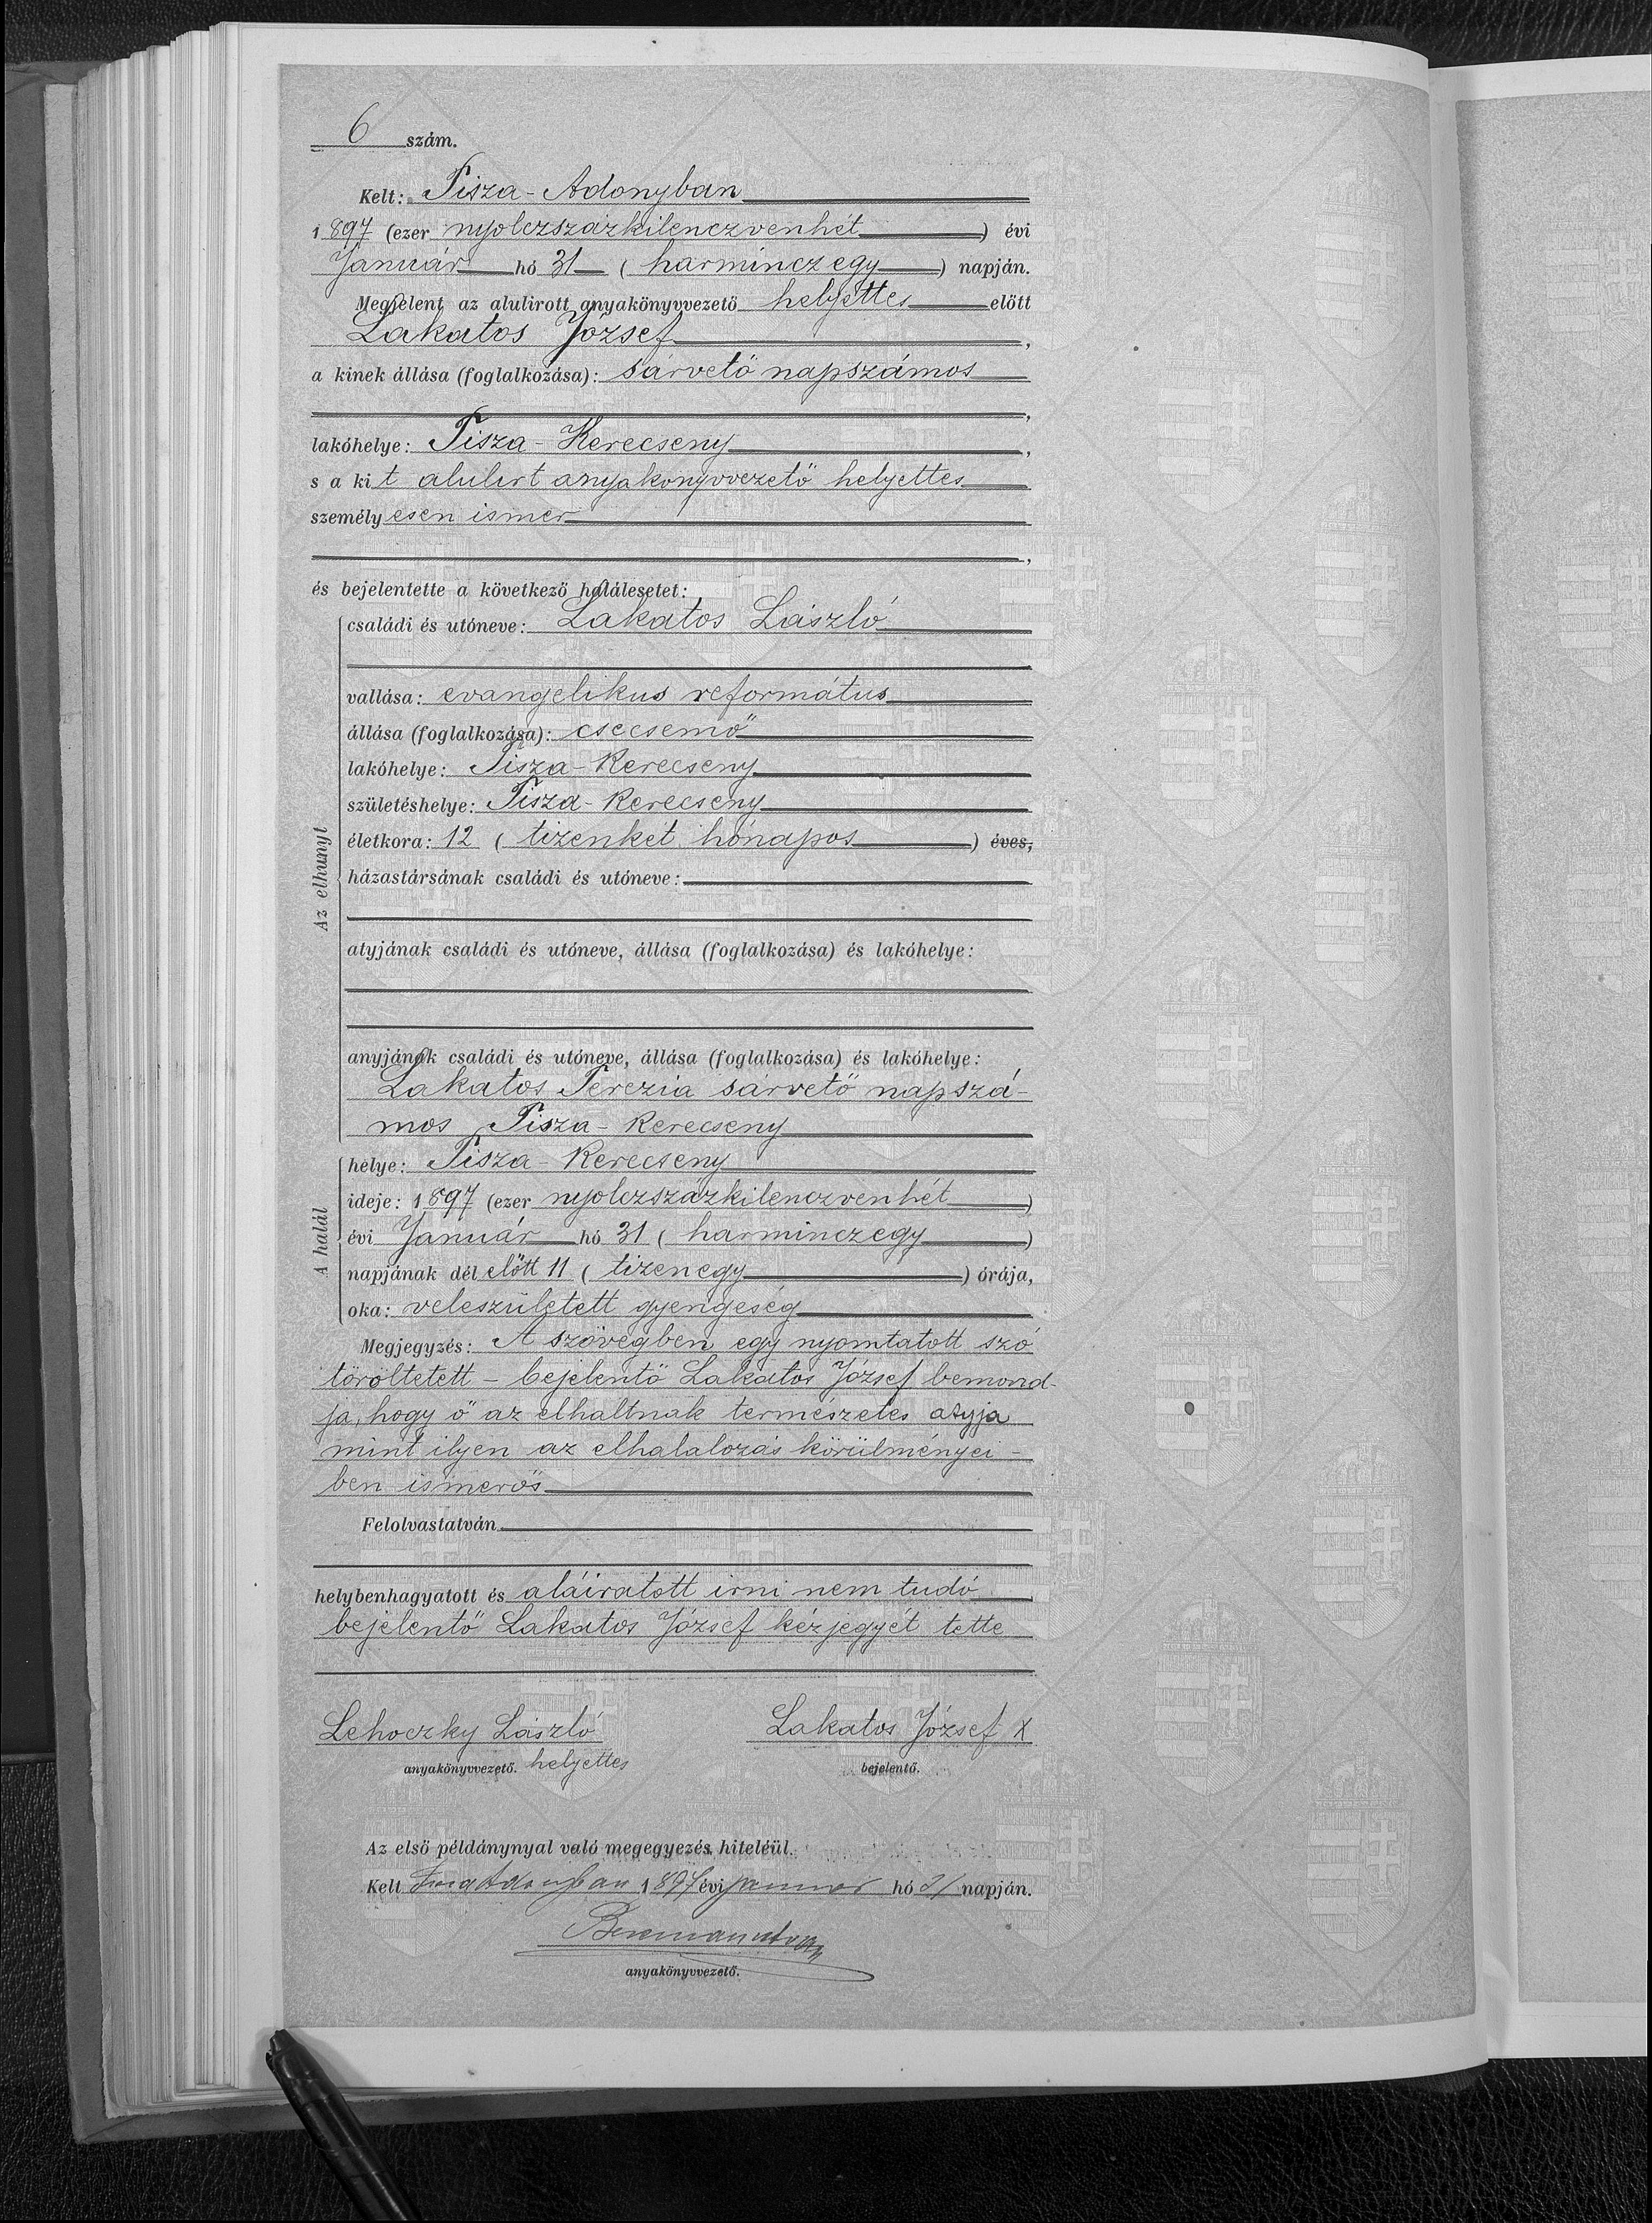 6 szám.
Kelt: Tisza-Adonyban
1897 (ezer nyolczszázkilenczvenhét) évi
Január hó 31 (harminczegy) napján.
Megjelent az alulirott anyakönyvvezető helyettes előtt
Lakatos József,
a kinek állása (foglalkozása): sárvető napszámos
,
lakóhelye: Tisza-Kerecseny,
s a kit alulirt anyakönyvvezető helyettes
személyesen ismer
,
és bejelentette a következő halálesetet:
Az elhunyt
családi és utóneve: Lakatos László
vallása: evangelikus református
állása (foglalkozása): csecsemő
lakóhelye: Tisza-Kerecseny
születéshelye: Tisza-Kerecseny
életkora: 12 (tizenkét hónapos) éves,
házastársának családi és utóneve:
atyjának családi és utóneve, állása (foglalkozása) és lakóhelye:
anyjának családi és utóneve, állása (foglalkozása) és lakóhelye:
Lakatos Terezia sárvető napszá-
mos Tisza-Kerecseny
A halál
helye: Tisza-Kerecseny
ideje: 1897 (ezer nyolczszázkilenczvenhét)
évi Január hó 31 (harminczegy)
napjának dél előtt 11 (tizenegy) órája,
oka: veleszületett gyengeség
Megjegyzés: A szövegben egy nyomtatott szó
töröltetett - bejelentő Lakatos József bemond-
ja, hogy ő az elhaltnak természetes atyja
mint ilyen az elhalalozás körülményei-
ben ismerős
Felolvastatván
helybenhagyatott és aláiratott irni nem tudó
bejelentő Lakatos József kézjegyét tette
Lehoczky László
Lakatos József X
anyakönyvvezető. helyettes
bejelentő.
Az első példánynyal való megegyezés hiteléül.
Kelt TiszaAdonyban 1897 évi januar hó 31 napján.
anyakönyvvezető.